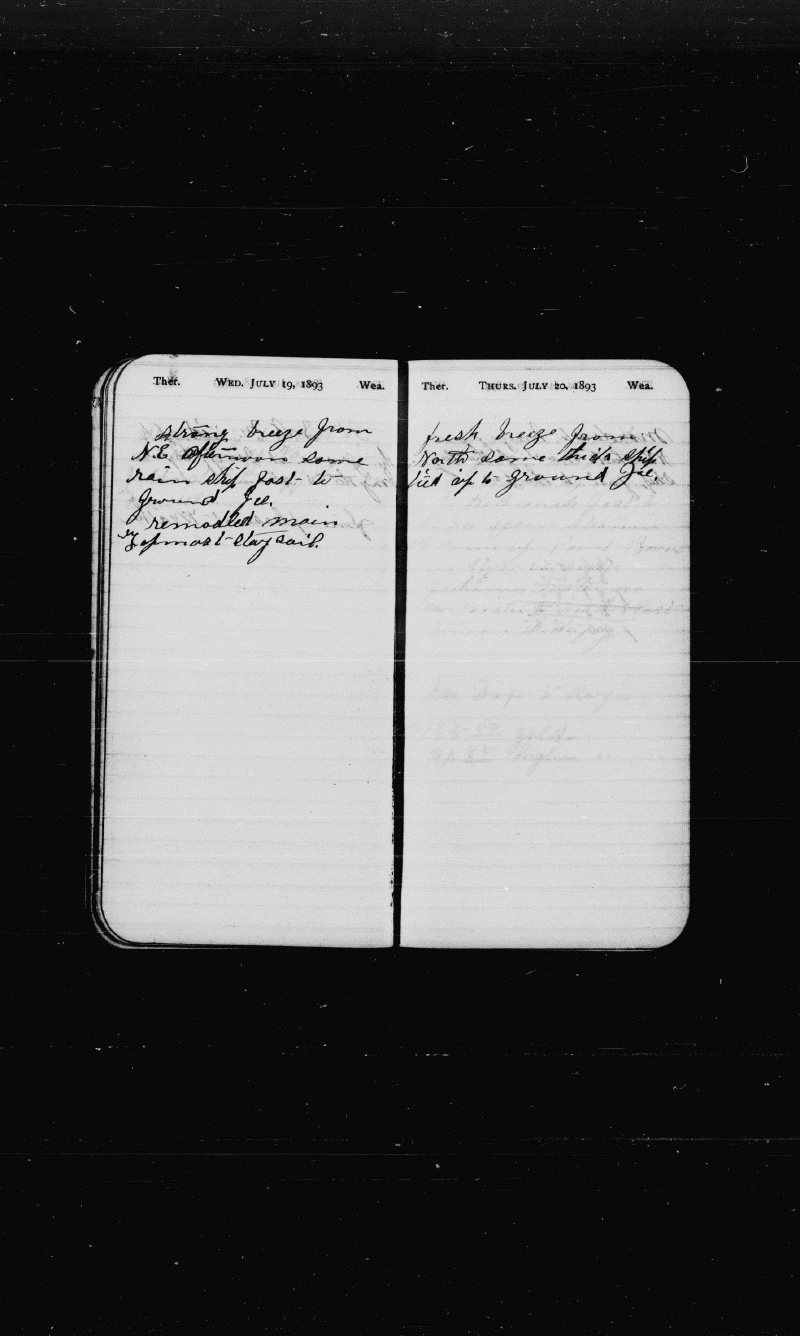 Ther. WED. JULY 19, 1893 Wea.
strong breeze from
N.E. afternoon some
rain ship fast to
ground Ice.
remodled main
Topmast staysail.
Ther. THURS. JULY 20, 1893 Wea.
fresh breeze from
North some thick ship
tied up to ground Ice.